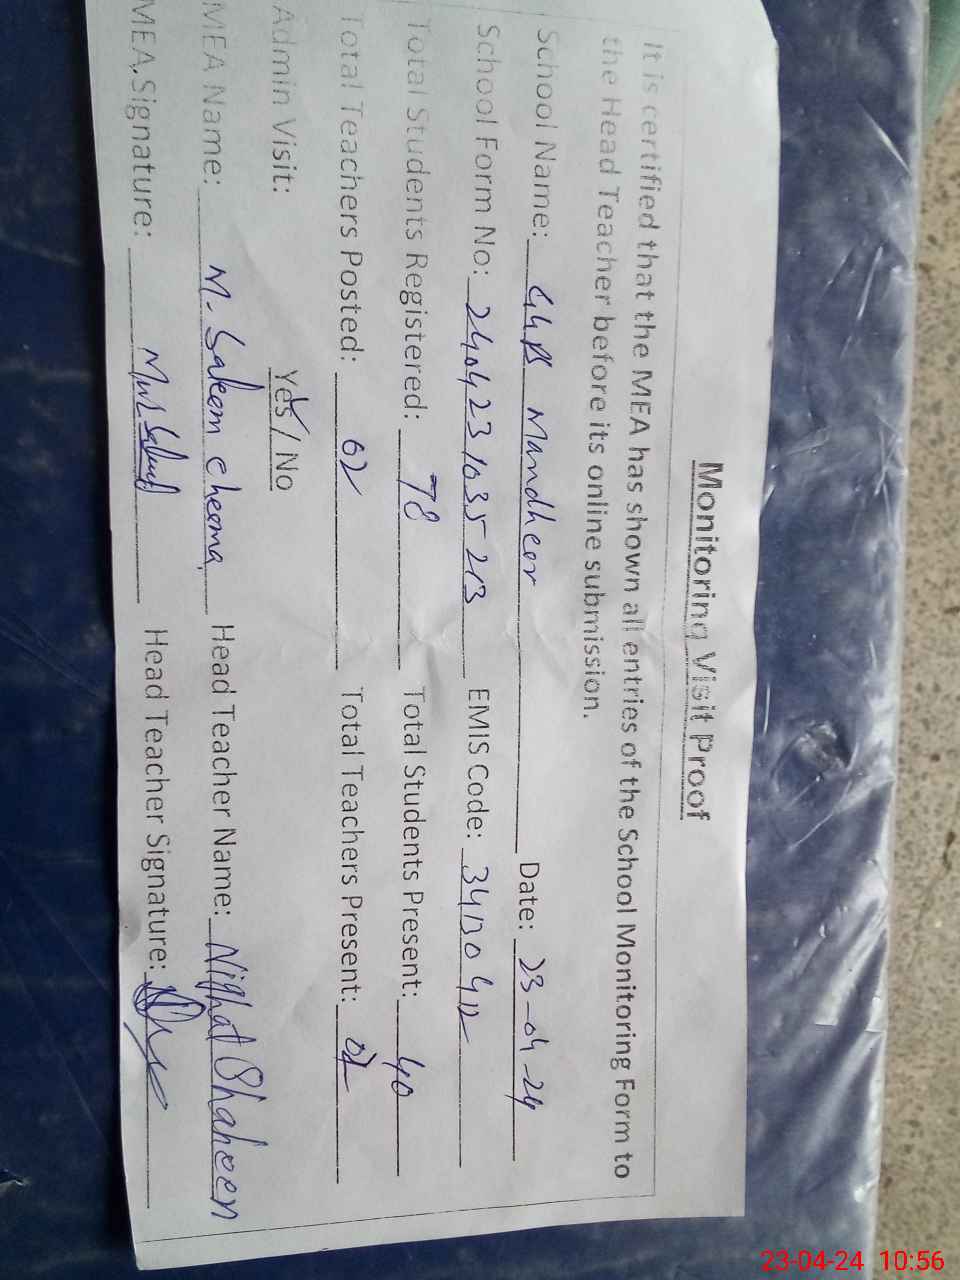 Monitoring Visit Proof
It is certified that the MEA has shown all entries of the School Monitoring Form to
the Head Teacher before its online submission.
School Name: GHPS Mandheer Date: 23-04-24
School Form No: 2404231035213 EMIS Code: 34130412
Total Students Registered: 78 Total Students Present: 40
Total Teachers Posted: 02 Total Teachers Present: 02
Admin Visit: Yes / No
MEA Name: M. Saleem cheema Head Teacher Name: Nighat Shaheen
MEA Signature: Head Teacher Signature:
23-04-24 10:56